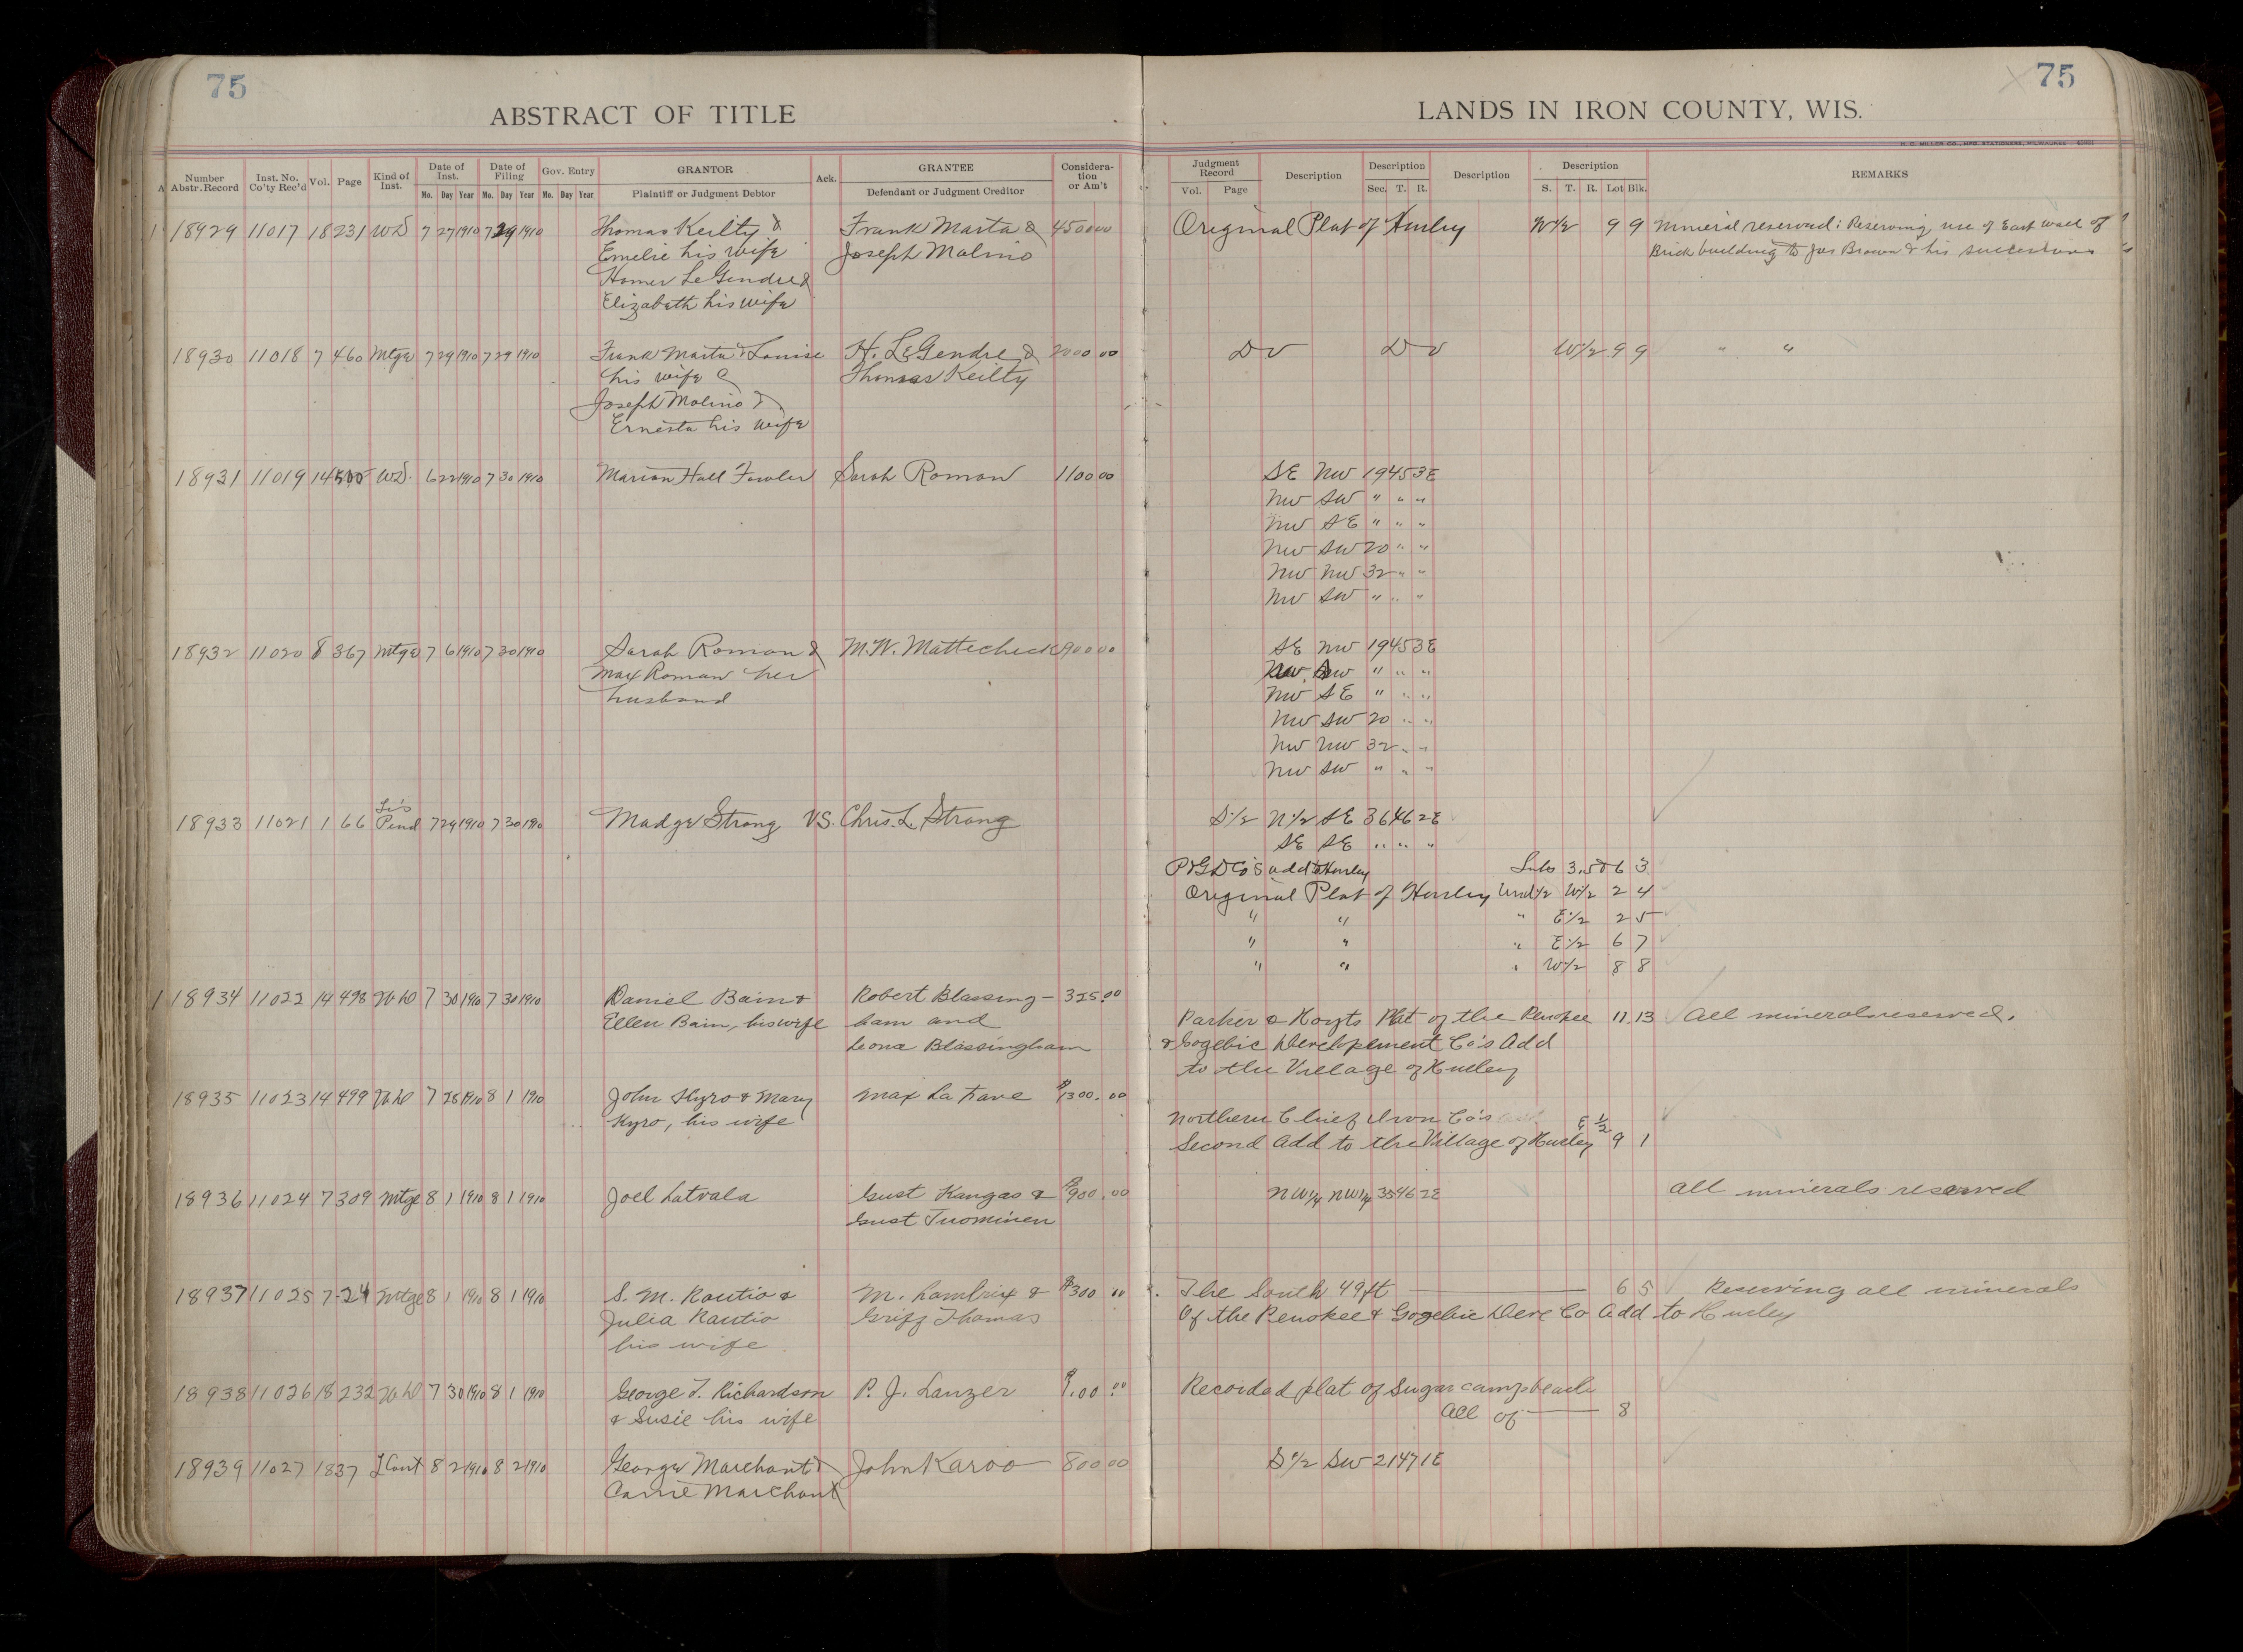 75
75
ABSTRACT OF TITLE
LANDS IN IRON COUNTY, WIS.
H. C. MILLER CO., MFG. STATIONERS, MILWAUKEE
A Number Abstr. Record Inst. No. Co'ty Rec'd Vol. Page Kind of Inst. Date of Inst. Mo. Day Year Date of Filing Mo. Day Year Gov. Entry Mo. Day Year GRANTOR Plaintiff or Judgment Debtor Ack. GRANTEE Defendant or Judgment Creditor Considera- tion or Am't Judgment Record Vol. Page Description Description Sec. T. R. Description Description S. T. R. Lot Blk. REMARKS
1 18929 11017 18 231 WD 7 27 1910 7 29 1910 Thomas Keilty & Frank Marta & 4500 00 Original Plat of Hurley W 1/2 9 9 Mineral reserved; Reserving use of East wall of
Emelie his wife Joseph Molino Brick building to Jos Brown & his successions
Homer LeGendre &
Elizabeth his wife
18930 11018 7 460 Mtge 7 29 1910 7 29 1910 Frank Marta & Louise H. LeGendre & 2000 00 Do Do W 1/2 9 9 " "
his wife & Thomas Keilty
Joseph Molino &
Ernesta his wife
18931 11019 14 500 WD. 6 22 1910 7 30 1910 Marion Hall Fowler Sarah Roman 1100 00 SE NW 19 45 3E
NW SW " " "
NW SE " " "
NW SW 20 " "
NW NW 32 " "
NW SW " " "
18932 11020 8 367 Mtge 7 6 1910 7 30 1910 Sarah Roman & M.W. Mattecheck 900 00 SE NW 19 45 3E
Max Roman her NW SW " " "
husband NW SE " " "
NW SW 20 " "
NW NW 32 " "
NW SW " " "
18933 11021 1 66 Lis Pend 7 29 1910 7 30 1910 Madge Strong VS. Chris. L. Strong S 1/2 N 1/2 SE 36 46 2E
SE SE " " "
P&GDCo's add to Hurley Lots 3.5&6 3
Original Plat of Hurley Und 1/2 W 1/2 2 4
" " " E 1/2 2 5
" " " E 1/2 6 7
" " " W 1/2 8 8
1 18934 11022 14 498 WD 7 30 1910 7 30 1910 Daniel Bain & Robert Blassing- 325.00
Ellen Bain, his wife ham and Parker & Hoyts Plat of the Penokee 11 13 All minerals reserved.
Leona Blassingham & Gogebic Development Co's Add
to the Village of Hurley
18935 11023 14 499 WD 7 28 1910 8 1 1910 John Kyro & Mary Max La Fave $1300.00
Kyro, his wife Northern Chief Iron Co's
Second Add to the Village of Hurley E 1/2 9 1
18936 11024 7 309 Mtge 8 1 1910 8 1 1910 Joel Latvala Gust Kangas & $900.00 NW 1/4 NW 1/4 35 46 2E All minerals reserved
Gust Tuominen
18937 11025 7 24 Mtge 8 1 1910 8 1 1910 S. M. Rautio & M. Lambrix & $300 00 The South 49 ft 6 5 Reserving all minerals
Julia Rautio Griff Thomas Of the Penokee & Gogebic Deve Co Add to Hurley
his wife
18938 11026 18 232 WD 7 30 1910 8 1 1910 George T. Richardson P. J. Lanzer $1.00 Recorded plat of Sugar camp beach
& Susie his wife All of 8
18939 11027 18 37 LCont 8 2 1910 8 2 1910 George Marchant & John Karoo 800 00 S 1/2 SW 21 47 1E
Carrie Marchant